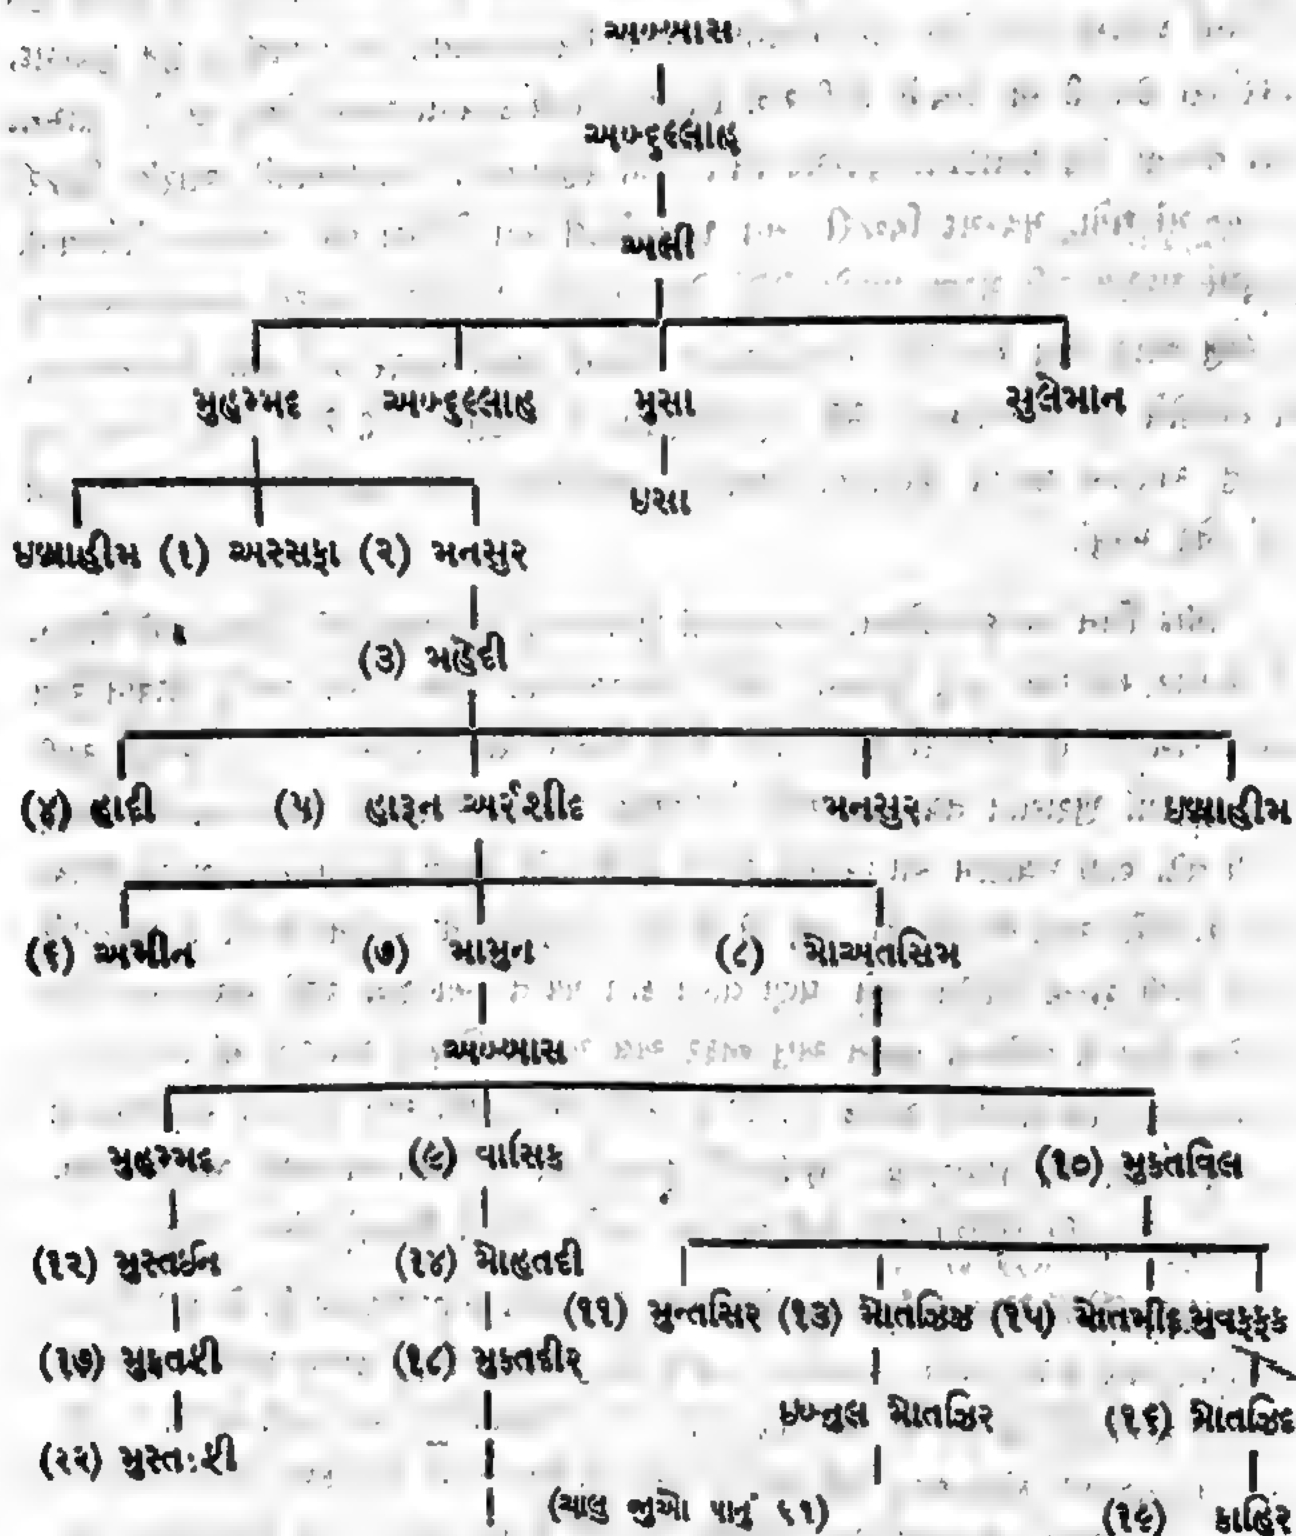 અબ્બાસ
અબ્દુલ્લાહ
અલી
મુહમ્મદ અબ્દુલ્લાહ મુસા સુલેમાન
ઇસા
ઇબ્રાહીમ (૧) અસ્સફા (૨) મનસુર
(૩) મહેદી
(૪) હાદી (૫) હારૂન અર્રશીદ મનસુર ઇબ્રાહીમ
(૬) અમીન (૭) મામુન (૮) મોઅતસિમ
અબ્બાસ
મુહમ્મદ (૯) વાસિક (૧૦) મુકતવિલ
(૧૨) મુસ્તઈન (૧૪) મોહતદી
(૧૧) મુન્તસિર (૧૩) મોતઝિઝ (૧૫) મોતમીદ મુવફ્ફક
(૧૭) મુકતફી (૧૮) મુકતદીર
ઇબ્નુલ મોતઝિર (૧૬) મોતઝિદ
(૨૨)
(ચાલુ જુઓ પાનું ૬૧) (૧૯) કાહિર